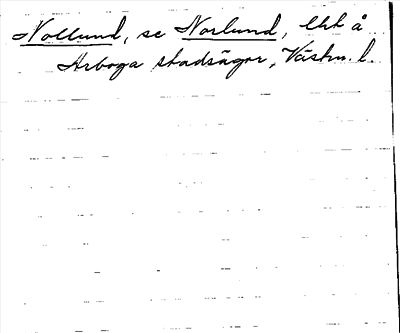 Nollund, se Norlund, lht å
Arboga stadsägor, Västm. l.